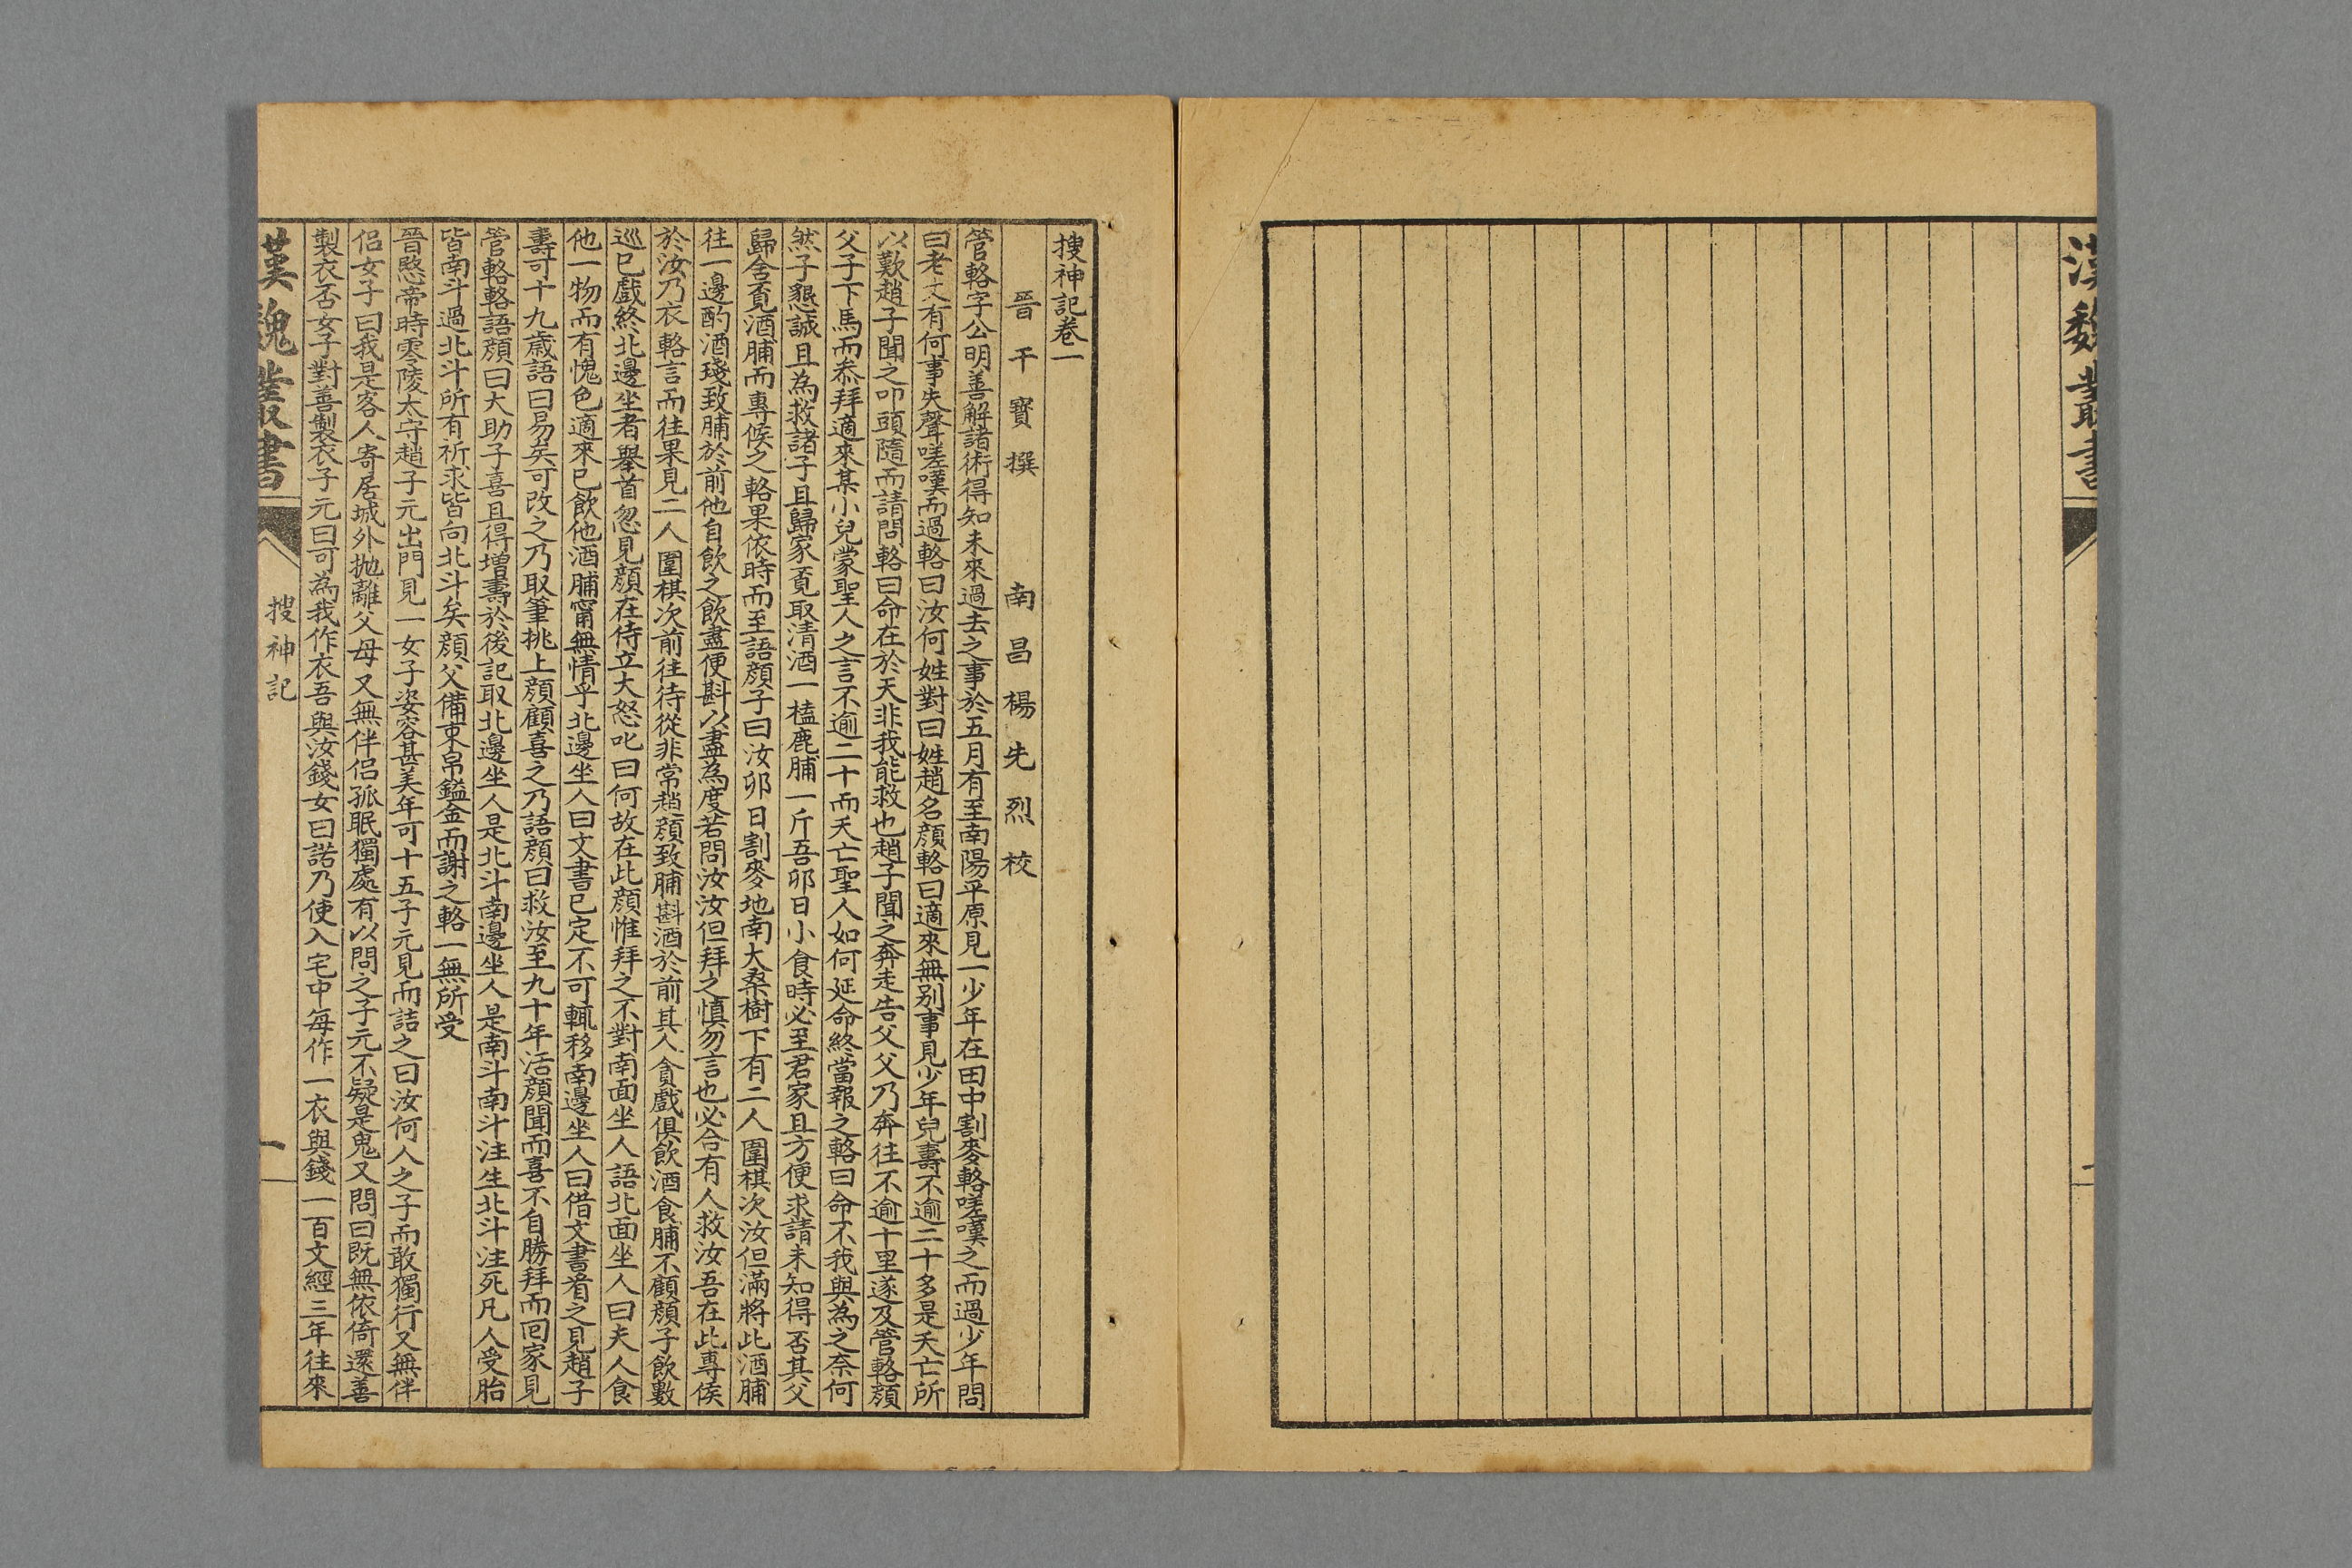 漢魏叢書
搜神記卷一
晉干寶撰　南昌楊先烈校
管輅字公明善解諸術得知未來過去之事於五月有至南陽平原見一少年在田中割麥輅嗟嘆之而過少年問
曰老丈有何事失聲嗟嘆而過輅曰汝何姓對曰姓趙名顔輅曰適來無别事見少年兒壽不逾二十多是夭亡所
以歎趙子聞之叩頭隨而請問輅曰命在於天非我能救也趙子聞之奔走告父父乃奔往不逾十里遂及管輅顔
父子下馬而叅拜適來某小兒蒙聖人之言不逾二十而夭亡聖人如何延命終當報之輅曰命不我與為之奈何
然子懇誠且為救諸子且歸家覔取清酒一榼鹿脯一斤吾卯日小食時必至君家且方便求請未知得否其父
歸舍覔酒脯而專候之輅果依時而至語顔子曰汝卯日割麥地南大桑樹下有二人圍棋次汝但滿將此酒脯
往一邊酌酒琖致脯於前他自飲之飲盡便斟以盡為度若問汝汝但拜之慎勿言也必合有人救汝吾在此專侯
於汝乃衣輅言而往果見二人圍棋次前往待從非常趙顔致脯斟酒於前其人貪戲俱飲酒食脯不顧顔子飲數
巡已戲終北邊坐者舉首忽見顔在侍立大怒叱曰何故在此顔惟拜之不對南面坐人語北面坐人曰夫人食
他一物而有愧色適來已飲他酒脯甯無情乎北邊坐人曰文書已定不可輒移南邊坐人曰借文書看之見趙子
壽可十九歲語曰易矣可改之乃取筆挑上顔顧喜之乃語顔曰救汝至九十年活顔聞而喜不自勝拜而回家見
管輅輅語顔曰大助子喜且得增壽於後記取北邊坐人是北斗南邊坐人是南斗南斗注生北斗注死凡人受胎
皆南斗過北斗所有祈求皆向北斗矣顔父備束帛鎰金而謝之輅一無所受
晉愍帝時零陵太守趙子元出門見一女子姿容甚美年可十五子元見而詰之曰汝何人之子而敢獨行又無伴
侶女子曰我是客人寄居城外抛離父母又無伴侣孤眠獨處有以問之子元不疑是鬼又問曰既無依倚還善
製衣否女子對善製衣子元曰可為我作衣吾與汝錢女曰諾乃使入宅中每作一衣與錢一百文經三年往來
漢魏叢書
搜神記
一